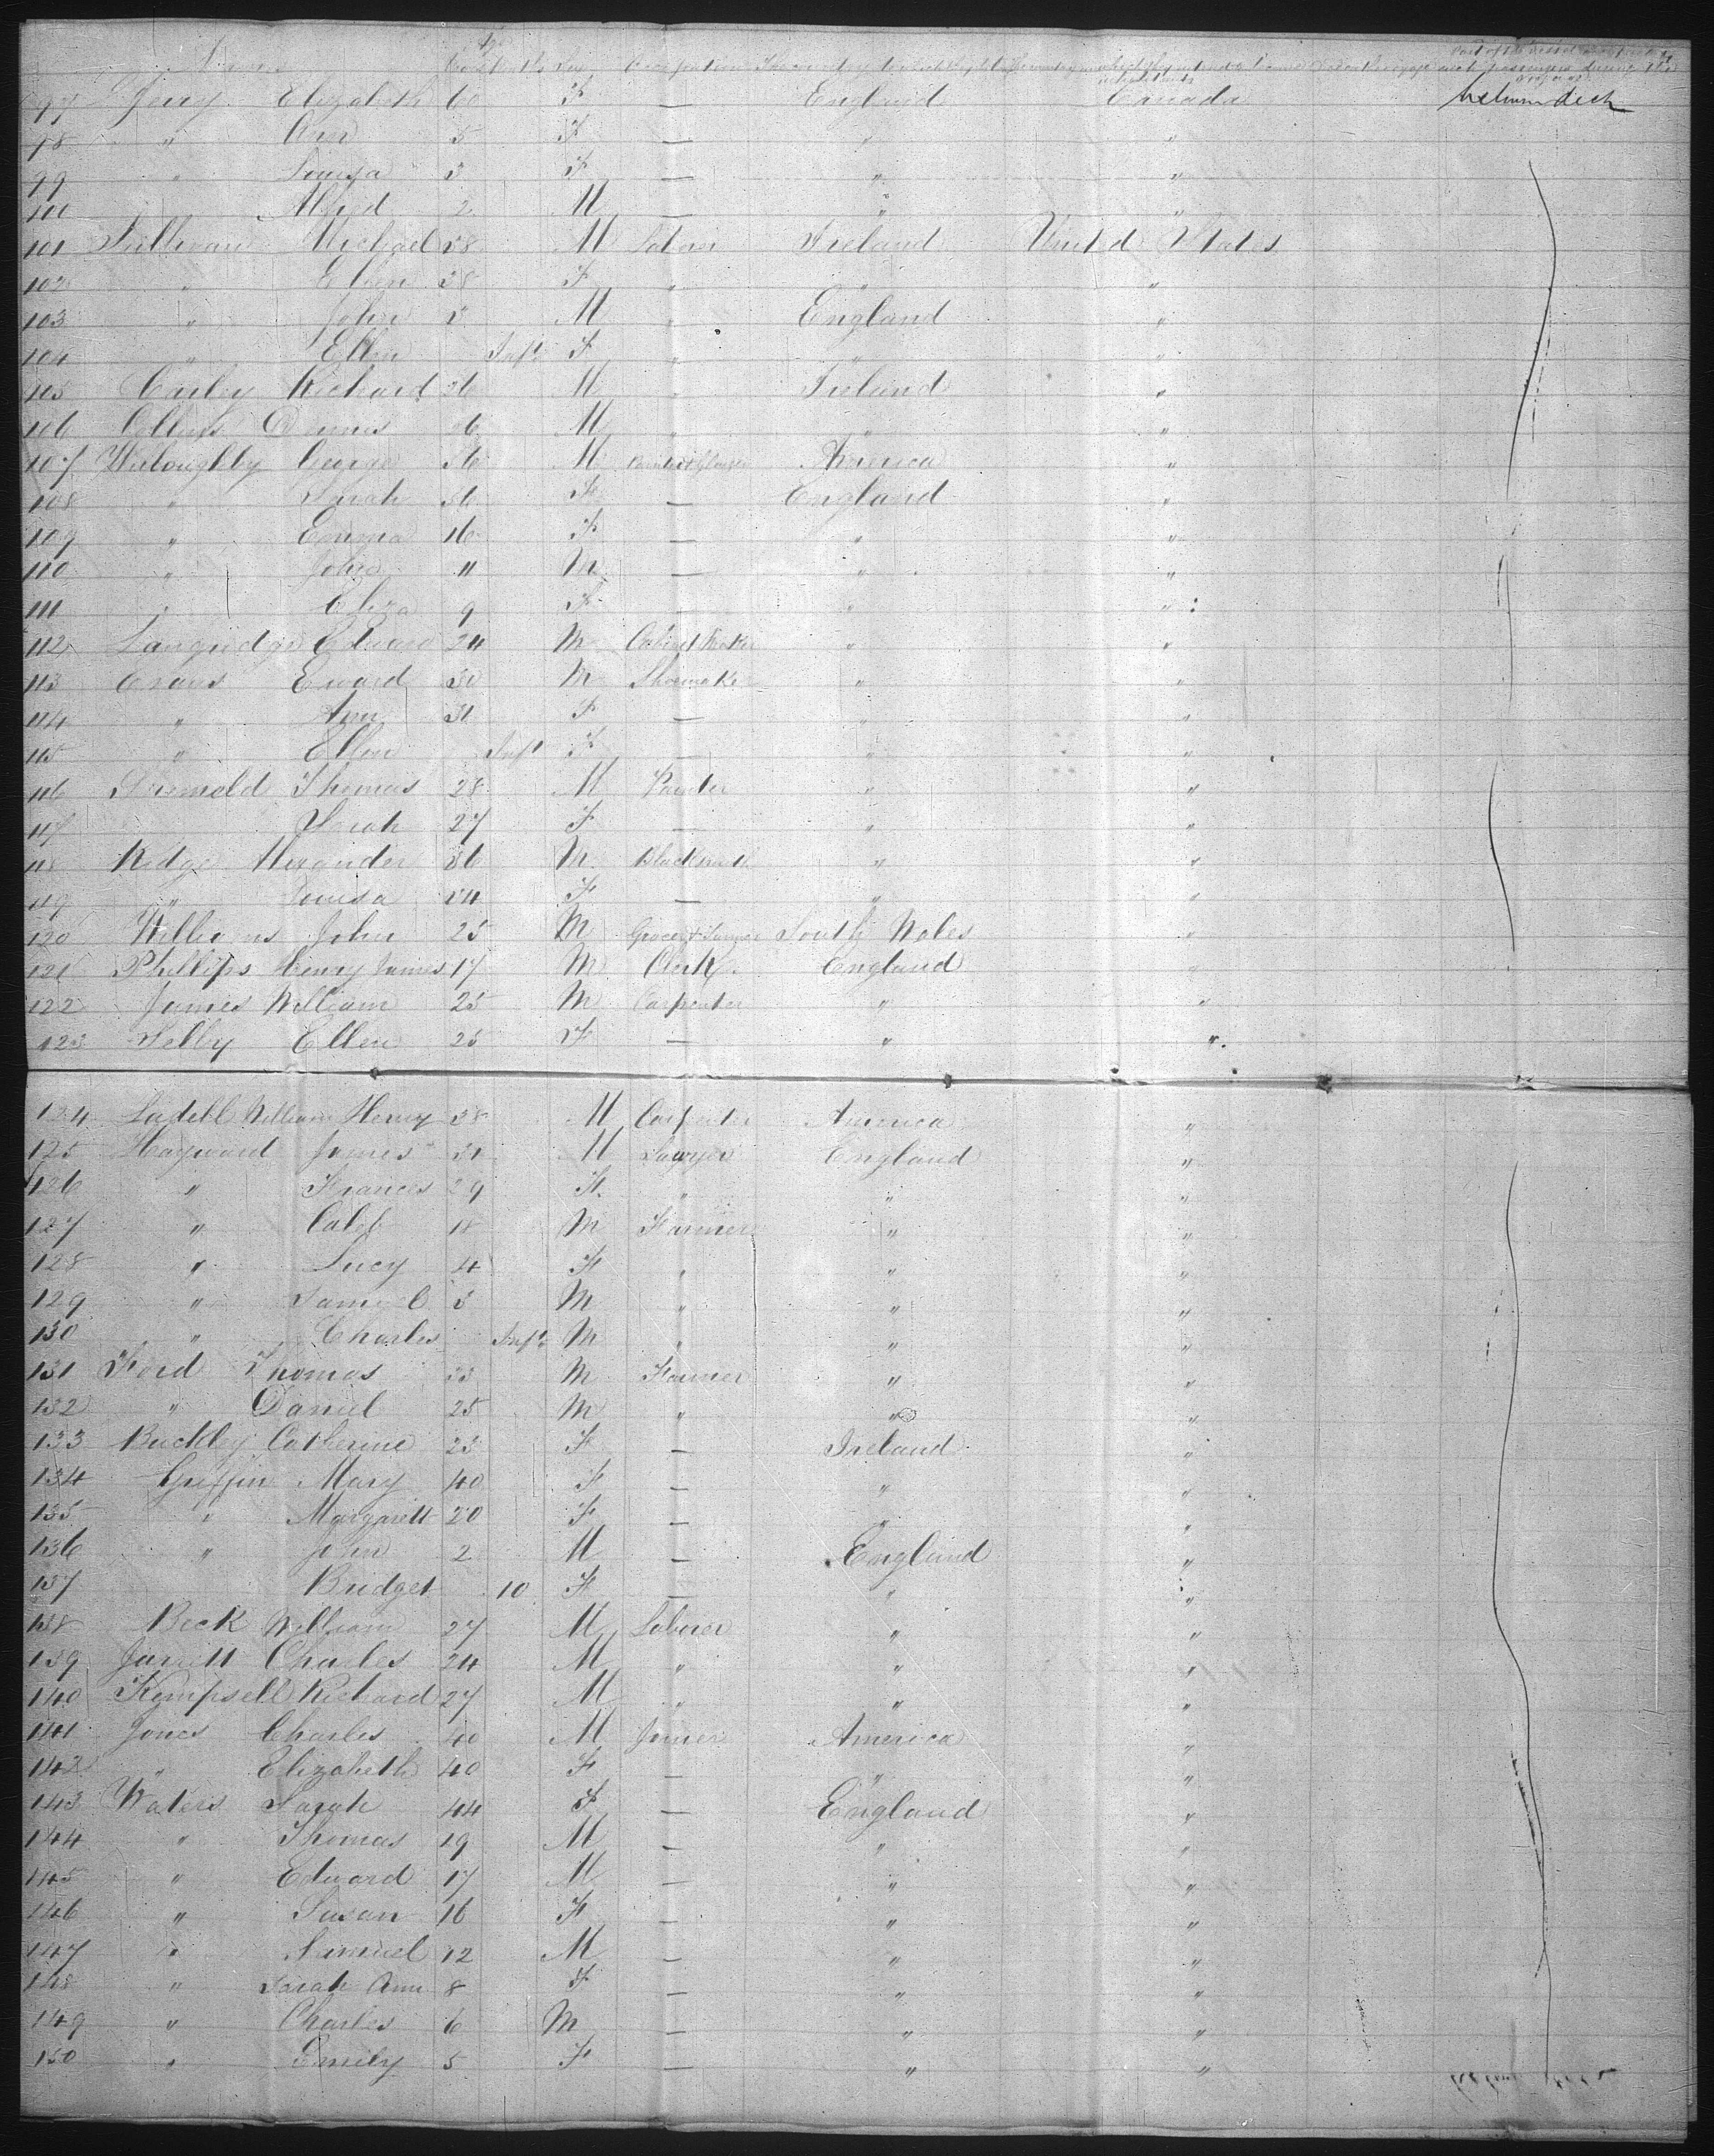 Names Age Sex Occupation
97 Jerry Elizabeth 60 F England Canada between deck
98 " Ann 5 F — " "
99 " Louisa 3 F — " "
100 Alfred 2 M — " "
101 Sullivan Michael 28 M Laborer Ireland United States
102 " Ellen 28 F " " "
103 " John M " England "
104 " Ellen Inft F " " "
105 Richard 26 M " Ireland "
106 Collins Dennis 26 M " " "
107 Willoughby George 36 M Painter & Glazier America "
108 " Sarah 36 F — England "
109 " Emma 16 F — " "
110 " John 11 M — " "
111 " Eliza 9 F — " "
112 Langridge Edward 24 M Cabinet Maker " "
113 Evans Eward 30 M Shoemaker " "
114 " Ann 31 F — " "
115 " Ellen Inft F — " "
116 Thomas 28 M Painter " "
117 Sarah 27 F — " "
118 Ridge Alexander 36 M Blacksmith " "
119 " Louisa 24 F — " "
120 Williams John 25 M South Wales "
121 Phillips Henry James 17 M Clerk England "
122 James William 25 M Carpenter " "
123 Selby Ellen 25 F — " "
124 William Henry 38 M Carpenter America "
125 Hayward James 31 M Sawyer England "
126 " Frances 29 F " " "
127 " Caleb 18 M Farmer " "
128 " Lucy 4 F " " "
129 " Samuel 3 M " " "
130 " Charles Inft M " " "
131 Ford Thomas 23 M Farmer " "
132 " Daniel 25 M " " "
133 Buckley Catherine 23 F — Ireland "
134 Griffin Mary 40 F — " "
135 " Margarett 20 F — " "
136 " John 2 M — England "
137 Bridget 10 F — " "
138 Beck William 27 M Laborer " "
139 Jarrett Charles 24 M " " "
140 Kempsell Richard 27 M " " "
141 Jones Charles 40 M Joiner America "
142 " Elizabeth 40 F — " "
143 Waters Sarah 44 F — England "
144 " Thomas 19 M — " "
145 " Edward 17 M — " "
146 " Susan 16 F — " "
147 " Samuel 12 M — " "
148 " Sarah Ann 8 F — " "
149 " Charles 6 M — " "
150 " Emily 5 F — " "